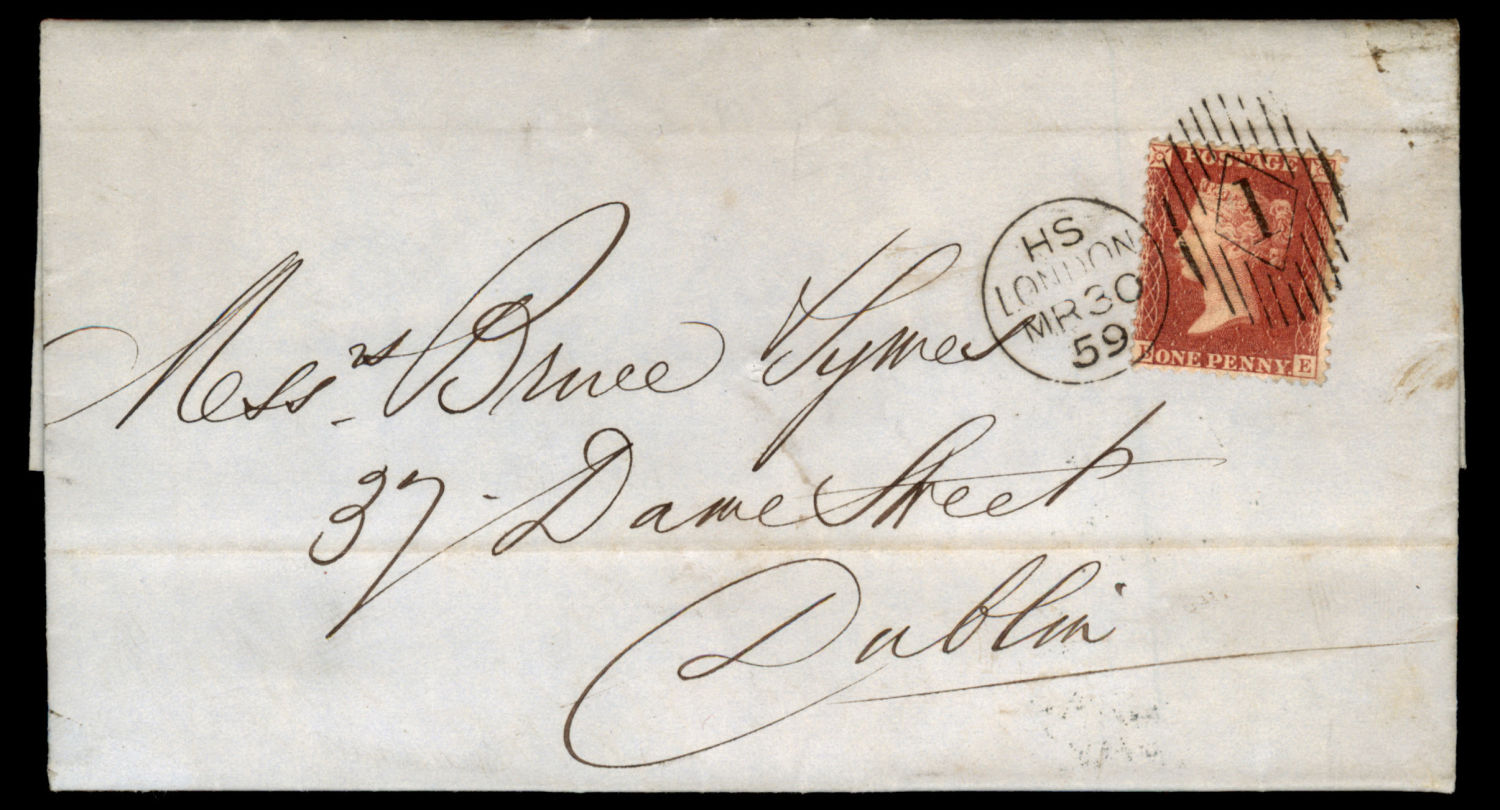 POSTAGE
1
HS
LONDON
MR 30
59
ONE PENNY.
E
Messrs Bruce Symes
37 Dame Street
Dublin